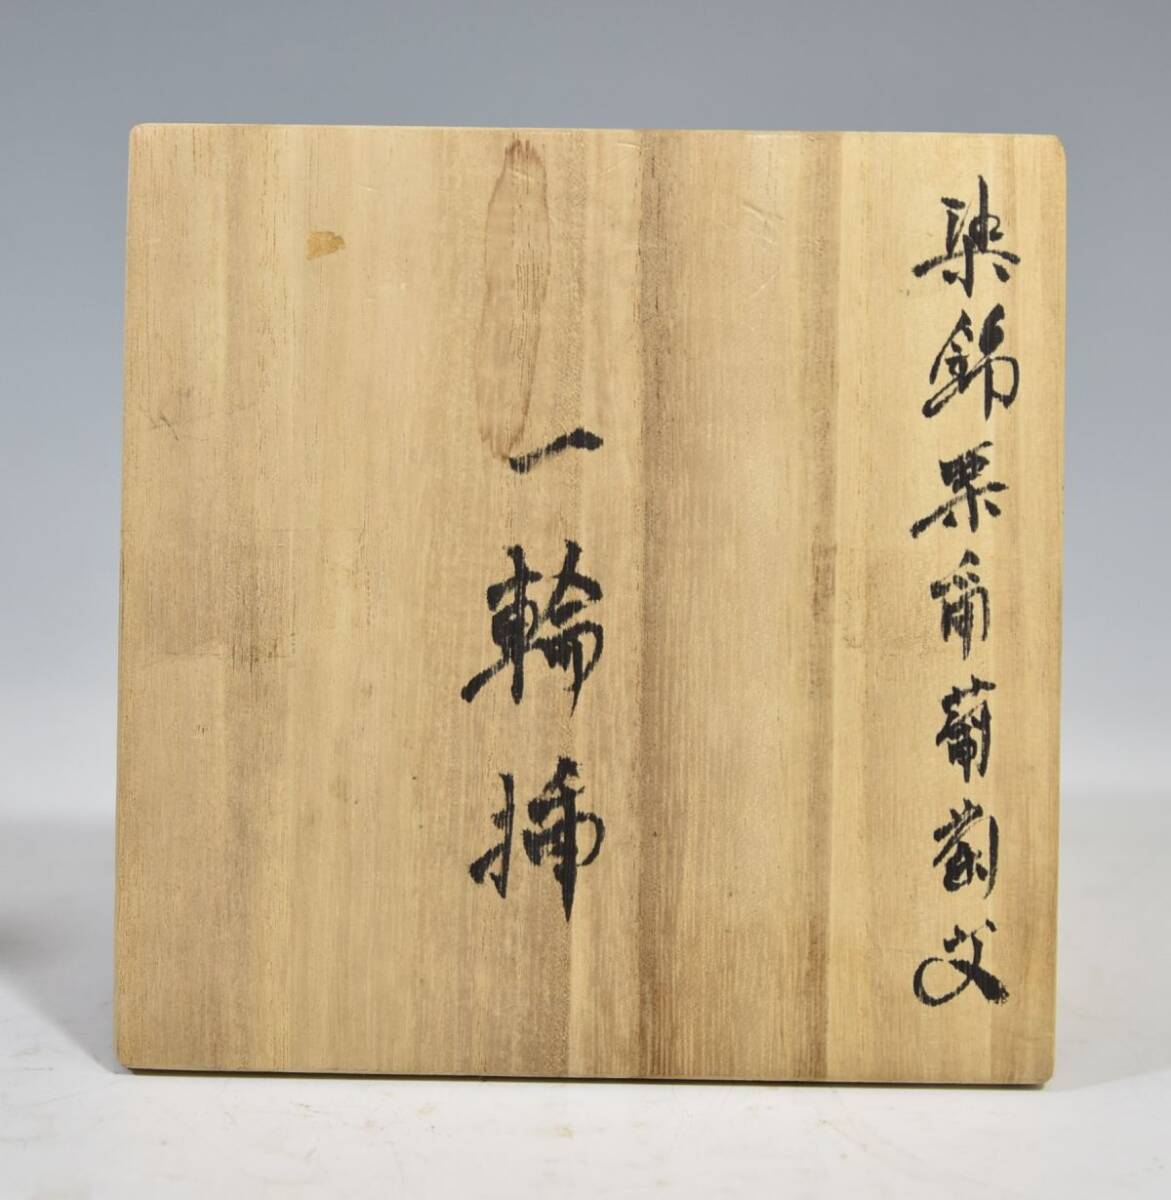 染錦栗鼠葡萄文
一輪挿